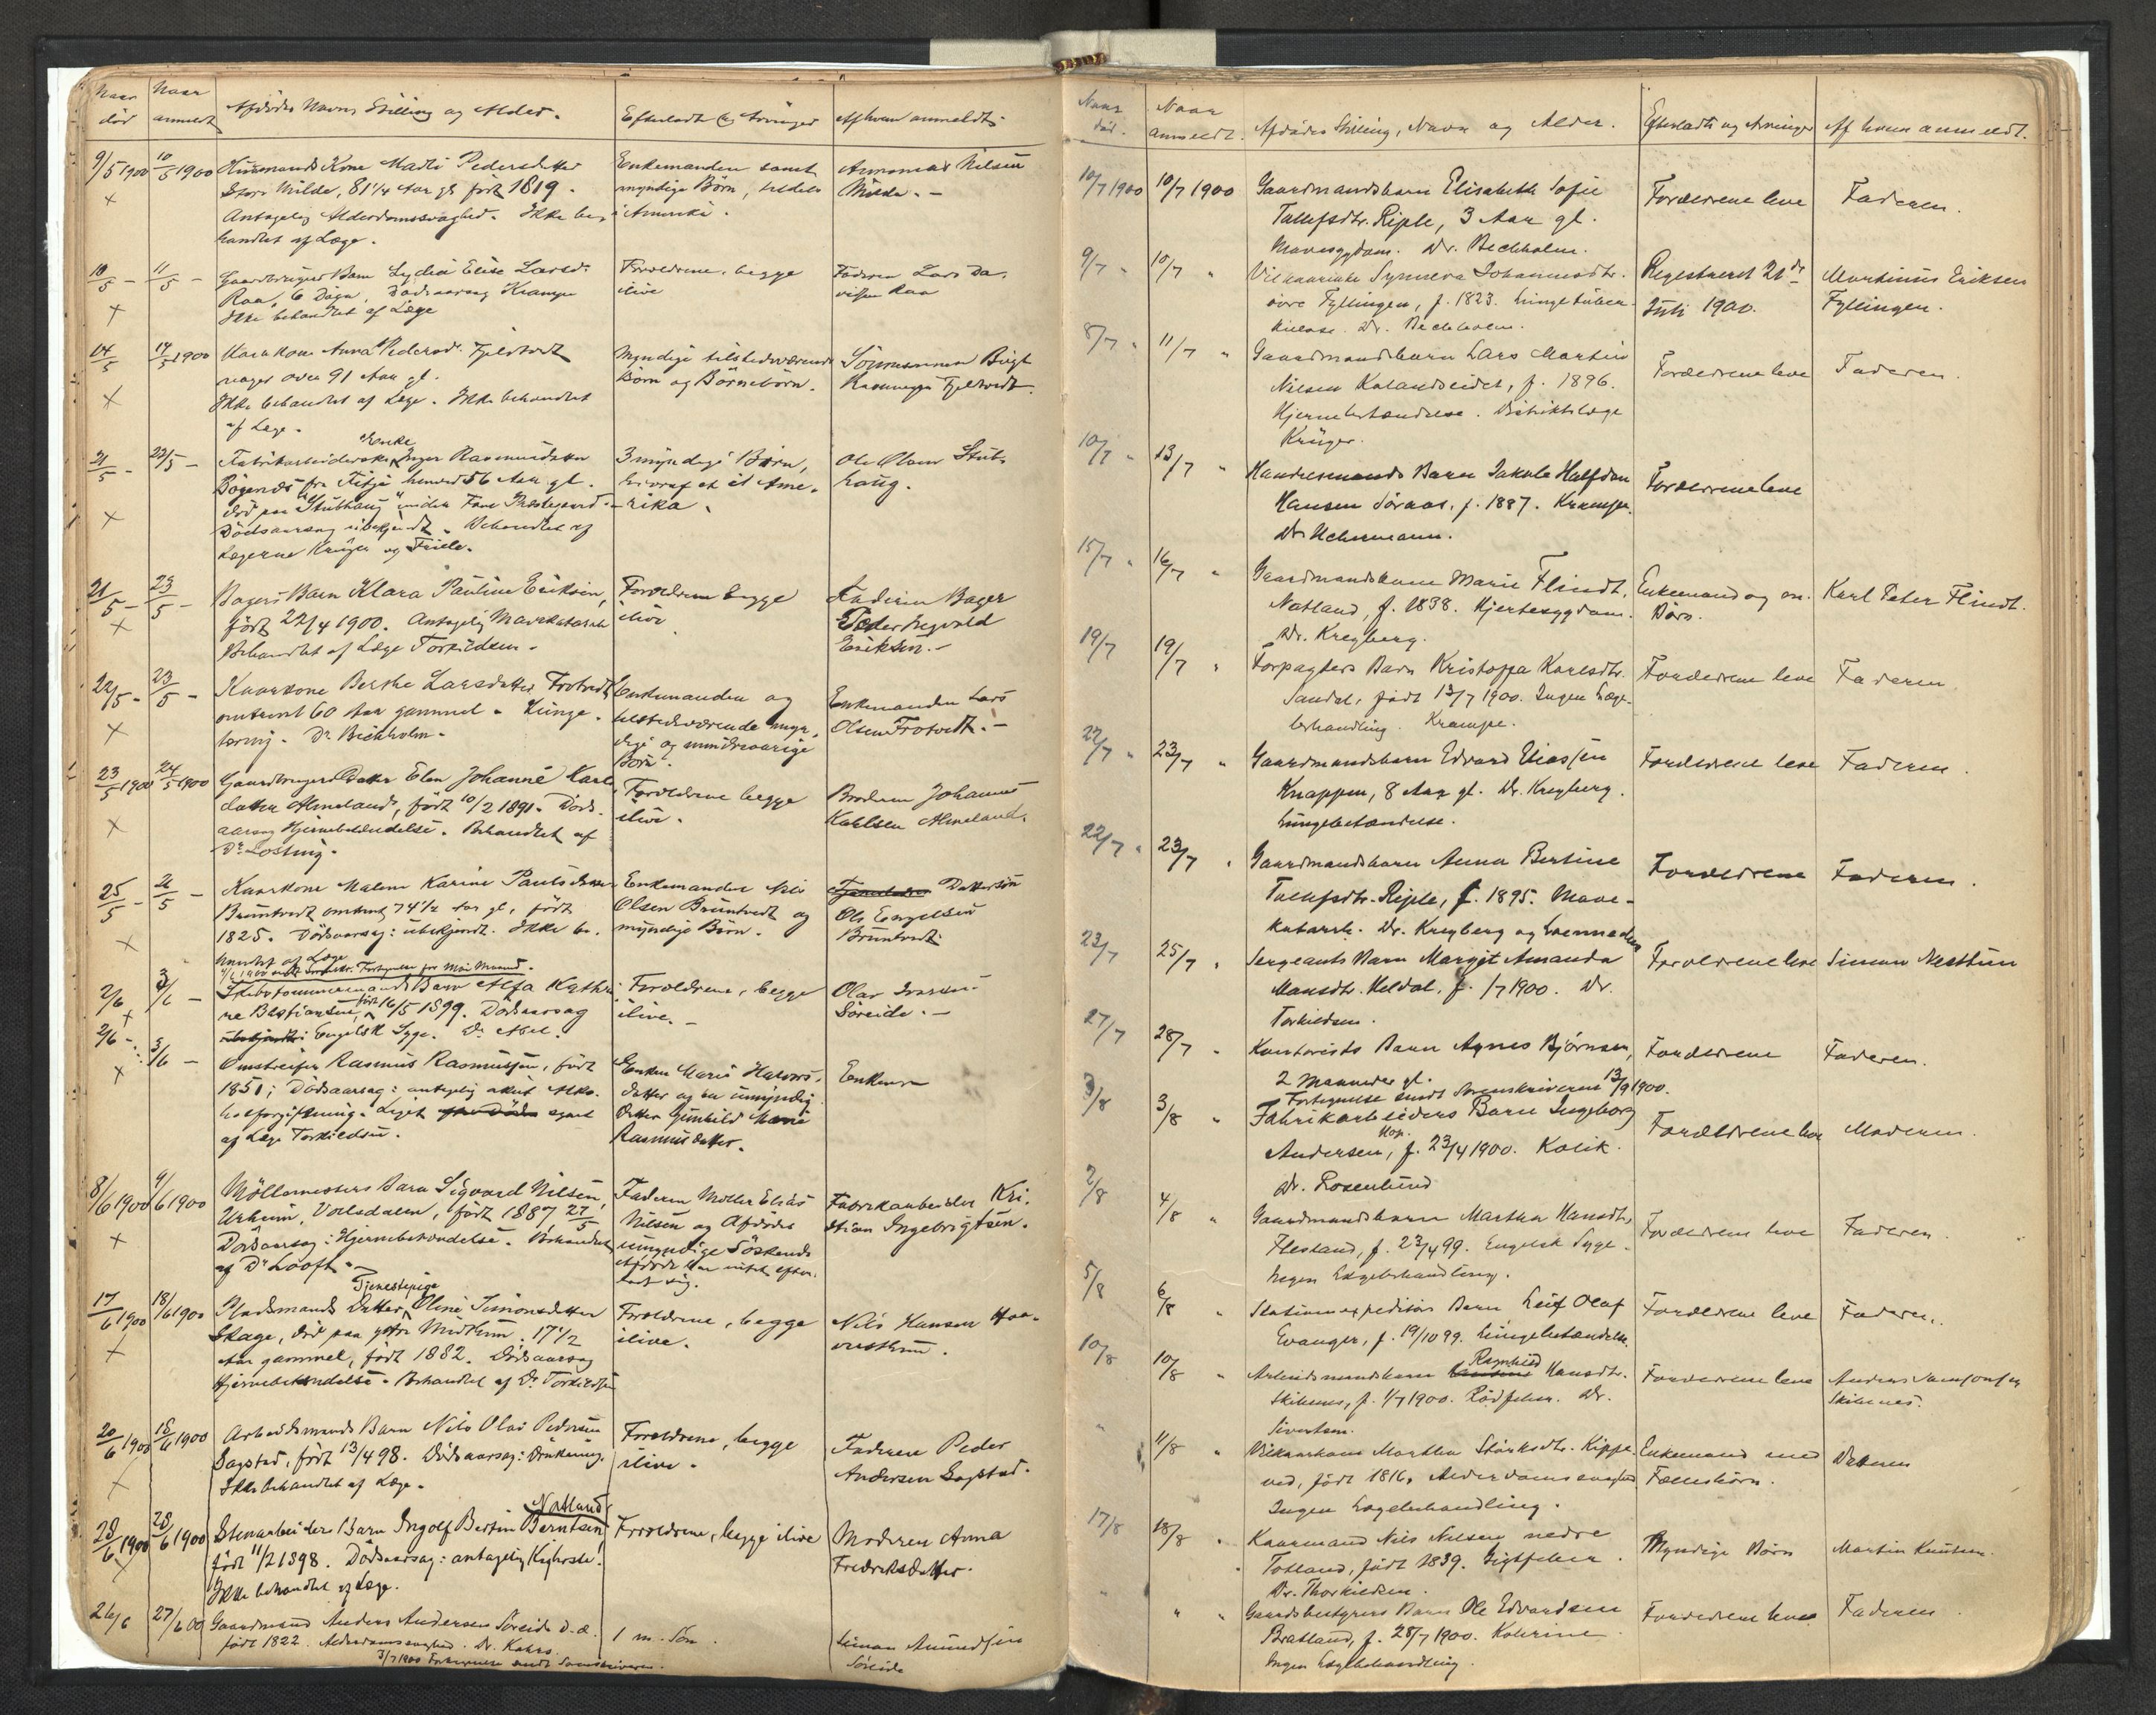 Naar død
Naar anmeldt
Afdødes Navn, Stilling og Alder.
Efterladte og Arvinger
Af hvem anmeldt.
9/5 1900 10/5 1900 Husmands Kone Madli Pedersdatter Enkemanden samt
Store Milde, 81 1/4 Aar gl. født 1819. myndige Børn, tildels Milde. -
Antagelig Alderdomssvaghed. Ikke be- i Amerika.
handlet af Læge.
10/5 - 11/5 - Gaardbrugers Barn Lydia Elise Larsd. Forældrene, begge Faderen Lars Da-
Raa, 6 Døgn, Dødsaarsag Krampe ilive vidsen Raa
Ikke behandlet af Læge
14/5 17/5 1900 Kaarkone Anna Pedersd. Fjeldtvedt Myndige tilstedeværende Sønnesønnen Birgt
noget over 91 Aar gl. Børn og Børnebørn. Rasmussen Fjeldtvedt.
Ikke behandlet af Læge. Ikke behandlet
af Læge.
21/5 - 22/5 - Fabrikarbeiderske Enke Inger Rasmusdatter 3 myndige Børn, Ole Olsen Stub-
Bøgenes fra Titje henved 56 Aar gl. hvoraf et i Ame- haug.
død paa "Stubhaug" under Fane Præstegaard. rika.
Dødsaarsag ubekjendt. Behandlet af
Lægerne Krüger og Friele.
21/5 - 23/5 - Bagers Barn Klara Pauline Eriksen, Forældrene begge Faderen Bager
født 22/4 1900. Antagelig Mavekatarrh ilive Peder Segvald
Behandlet af Læge Torkildsen. Eriksen. -
22/5 - 23/5 - Kaarkone Berthe Larsdatter Trotvedt Enkemanden og Enkemanden Lars
omtrent 60 Aar gammel. Lunge- tilstedeværende myn- Olsen Trotvedt. -
tæring. Dr. Bechholm. dige og mindreaarige
Børn.
23/5 1900 24/5 1900 Gaardbrugers Datter Elen Johanne Karls- Forældrene begge Broderen Johannes
datter Almeland, født 10/2 1891. Døds- ilive. Karlsen Almeland.
aarsag Hjernebetændelse. Behandlet af
Dr.
25/5 - 26/5 - Kaarkone Malene Karine Paulsdatter Enkemanden Nils Dattersøn
Bruntvedt omtrent 74 1/2 Aar gl., født Olsen Bruntvedt og Ole Engelsen
1825. Dødsaarsag: ubekjendt. Ikke be- myndige Børn. Bruntvedt
handlet af Læge
Fortegnelse for Mai Maaned.
2/6 3/6 - Skibstømmermands Barn Alfa Kathri- Forældrene, begge Olav Iversen
ne Bastiansen, født 16/5 1899. Dødsaarsag ilive. - Søreide. -
ubekjendt: Engelsk Syge. Dr. Abel.
2/6 - 3/6 - Omstreifer Rasmus Rasmussen, født Enken Marie Halvors- Enken
1851; Dødsaarsag: antagelig akut Alko- datter og en umyndig
holforgiftning. Liget synet Datter Gunhild Marie
af Læge Torkildsen. Rasmusdatter.
8/6 1900 9/6 1900 Møllemesters Barn Sigvard Nilsen, Faderen Møller Elias Fabrikarbeider Kri-
Urheim, Vallsdalen, født 1887 27/5 Nilsen og Afdødes stian Ingebrigtsen.
Dødsaarsag: Hjernebetændelse. Behandlet umyndige Søskende
af Dr. Looft. - Afdøde har intet efter-
ladt sig.
17/6 1900 18/6 1900 Pladsmands Datter, Tjenestepige Oline Simonsdatter Forældrene, begge Nils Hansen Hop-
Skage, død paa ytre Midthun. 17 1/2 ilive.
Aar gammel, født 1882. Dødsaarsag
Hjernebetændelse. Behandlet af Dr. Torkildsen
20/6 1900 18/6 1900 Arbeidsmands Barn Nils Olai Pedersen Forældrene, begge Faderen Peder
Sagstad, født 13/4 98. Dødsaarsag: Drukning. ilive. Andersen Sagstad.
Ikke behandlet af Læge.
28/6 1900 28/6 1900 Stenarbeiders Barn Ingolf Bertin Berntsen Natland Forældrene, begge ilive Moderen Anna
født 11/2 1898. Dødsaarsag: antagelig Kighoste. Fredriksdatter.
Ikke behandlet af Læge.
26/6 27/6 00 Gaardmand Anders Andersen Søreide d.æ. 1 m. Søn. Simon Amundsen
født 1822. Alderdomssvaghed. Dr. Kahrs. Søreide
3/7 1900 Fortegnelse sendt Sorenskriveren.
Naar død.
Naar anmeldt.
Afdødes Stilling, Navn og Alder.
Efterladte og Arvinger
Af hvem anmeldt.
10/7 1900 10/7 1900 Gaardmandsbarn Elisabeth Sofie Forældrene leve Faderen.
Tollefsdtr. Riple, 3 Aar gl.
Mavesygdom. Dr. Bechholm.
9/7 " 10/7 " Vilkaarenke Synneva Johannesdtr. Registreret 21de Martinius Eriksen
øvre Fyllingen, f. 1823. Lungetuber- Juli 1900. Fyllingen.
kulose. Dr. Bechholm.
8/7 " 11/7 " Gaardmandsbarn Lars Martin Forældrene leve Faderen.
Nilsen Kalandseidet, f. 1896.
Hjernebetændelse. Distriktslæge
Krüger.
10/7 " 13/7 " Handelsmands Barn Jakob Halfdan Forældrene leve
Hansen Søraas, f. 1887. Krampe.
Dr. Uchermann.
15/7 16/7 " Gaardmandskone Marie Flindt, Enkemand og m. Karl Peter Flindt.
Natland, f. 1838. Hjertesygdom. Børn.
Dr. Kreyberg.
19/7 19/7 " Forpagters Barn Kristoffa Karlsdtr. Forældrene leve Faderen
Sandal, født 13/7 1900. Ingen Læge-
behandling. Krampe.
22/7 " 23/7 " Gaardmandsbarn Edvard Eliassen Forældrene leve Faderen.
Knappen, 8 Aar gl. Dr. Kreyberg.
Lungebetændelse.
22/7 " 23/7 " Gaardmandsbarn Anna Bertine Forældrene Faderen.
Tollefsdtr. Riple, f. 1895. Mave-
katarrh. Dr. Kreyberg og
23/7 25/7 " Sergeants Barn Margit Amanda Forældrene leve Simon Nesttun
Monsdtr. Heldal, f. /7 1900. Dr.
Torkildsen.
27/7 28/7 " Kontorists Barn Agnes Bjørnsen, Forældrene Faderen.
2 Maaneder gl.
Fortegnelse sendt Sorenskriveren 13/9 1900.
3/8 3/8 " Fabrikarbeiders Barn Ingeborg Forældrene leve Moderen.
Andersen, Hop. f. 23/4 1900. Kolik.
Dr. Rosenlund
2/8 4/8 " Gaardmandsbarn Martha Hansdtr. Forældrene leve Faderen.
Flesland, f. 23/4 99. Engelsk Syge.
Ingen Lægebehandling.
5/8 6/8 " Stationsexpeditørs Barn Leif Olaf Forældrene leve Faderen.
Evanger, f. 19/10 99. Lungebetændelse.
10/8 10/8 " Arbeidsmandsbarn Ragnhild Hansdtr. Forældrene leve Anders Samsonsen
Skibenes, f. 1/7 1900. Rødfeber. Dr. Skibenes.
Sivertsen.
" 11/8 " Vilkaarkone Martha Størksdtr. Kippe- Enkemand med
ved, født 1816. Alderdomssvaghed Fællesbørn.
Ingen Lægebehandling.
17/8 18/8 " Kaarmand Nils Nilsen nedre Myndige Børn Martin Knutsen.
Totland, født 1839. Gigtfeber.
Dr. Thorkildsen.
" " " Gaardsbestyrers Barn Ole Edvardsen Forældrene leve Faderen
Bratland, f. 28/7 1900. Kolerine.
Ingen Lægebehandling.